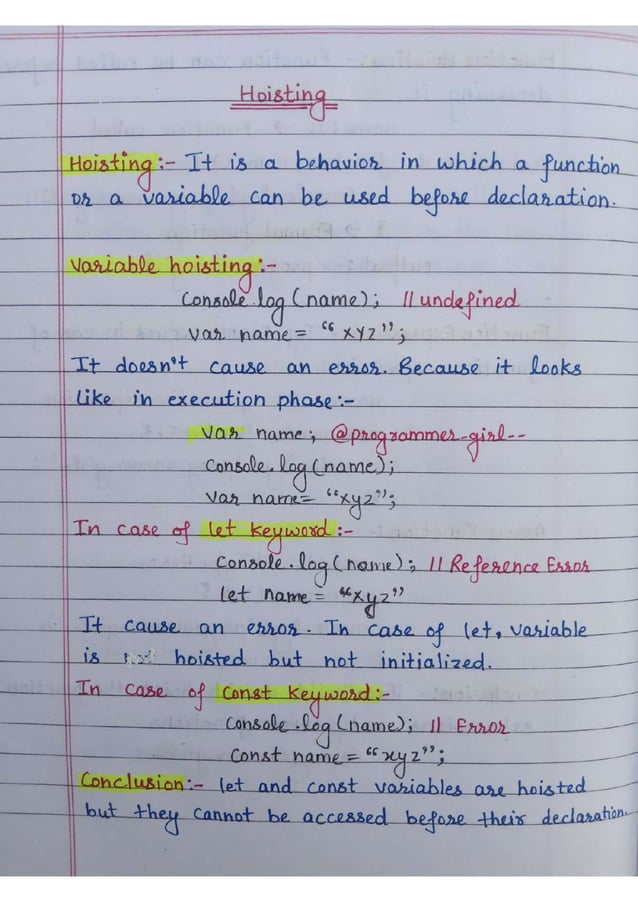 Hoisting
Hoisting :- It is a behavior in which a function
or a variable can be used before declaration.
Variable hoisting :-
Console.log (name); // undefined
var name = "xyz";
It doesn't cause an error. Because it looks
like in execution phase :-
var name; @programmer-girl--
Console.log (name);
var name = "xyz";
In case of let keyword :-
Console.log (name); // Reference Error
let name = "xyz"
It cause an error. In case of let, variable
is hoisted but not initialized.
In case of const keyword :-
Console.log (name); // Error
Const name = "xyz";
Conclusion :- let and const variables are hoisted
but they cannot be accessed before their declaration.